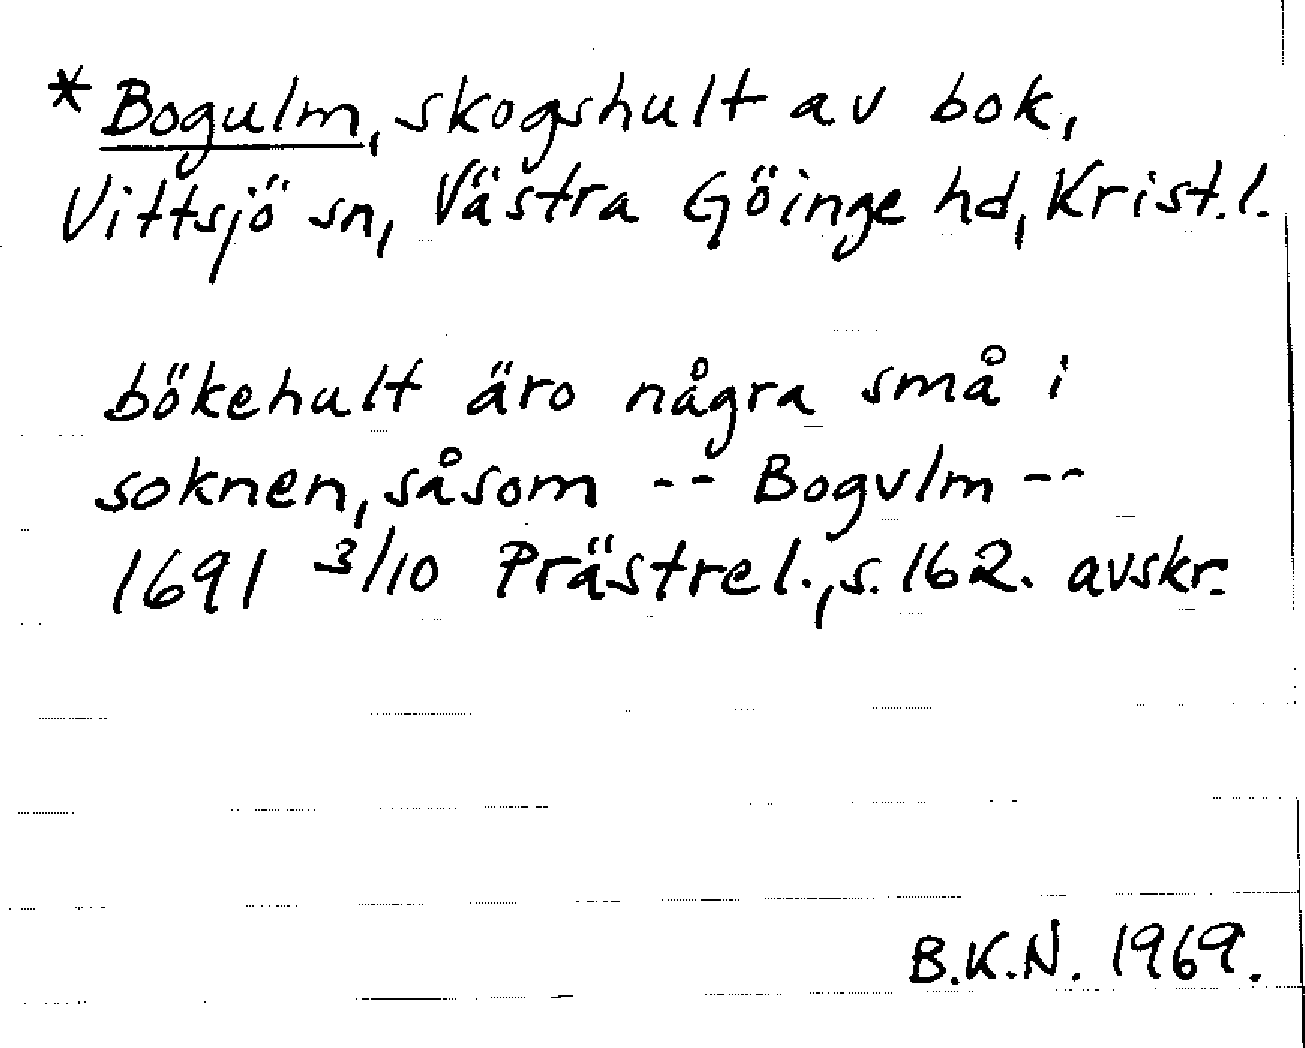 *Bogulm, skogshult av bok,
Vittsjö sn, Västra Göinge hd, Krist.l.
bökehult äro några små i
soknen, såsom -- Bogvlm --
1691 3/10 Prästrel., s. 162. avskr.
B.K.N. 1969.